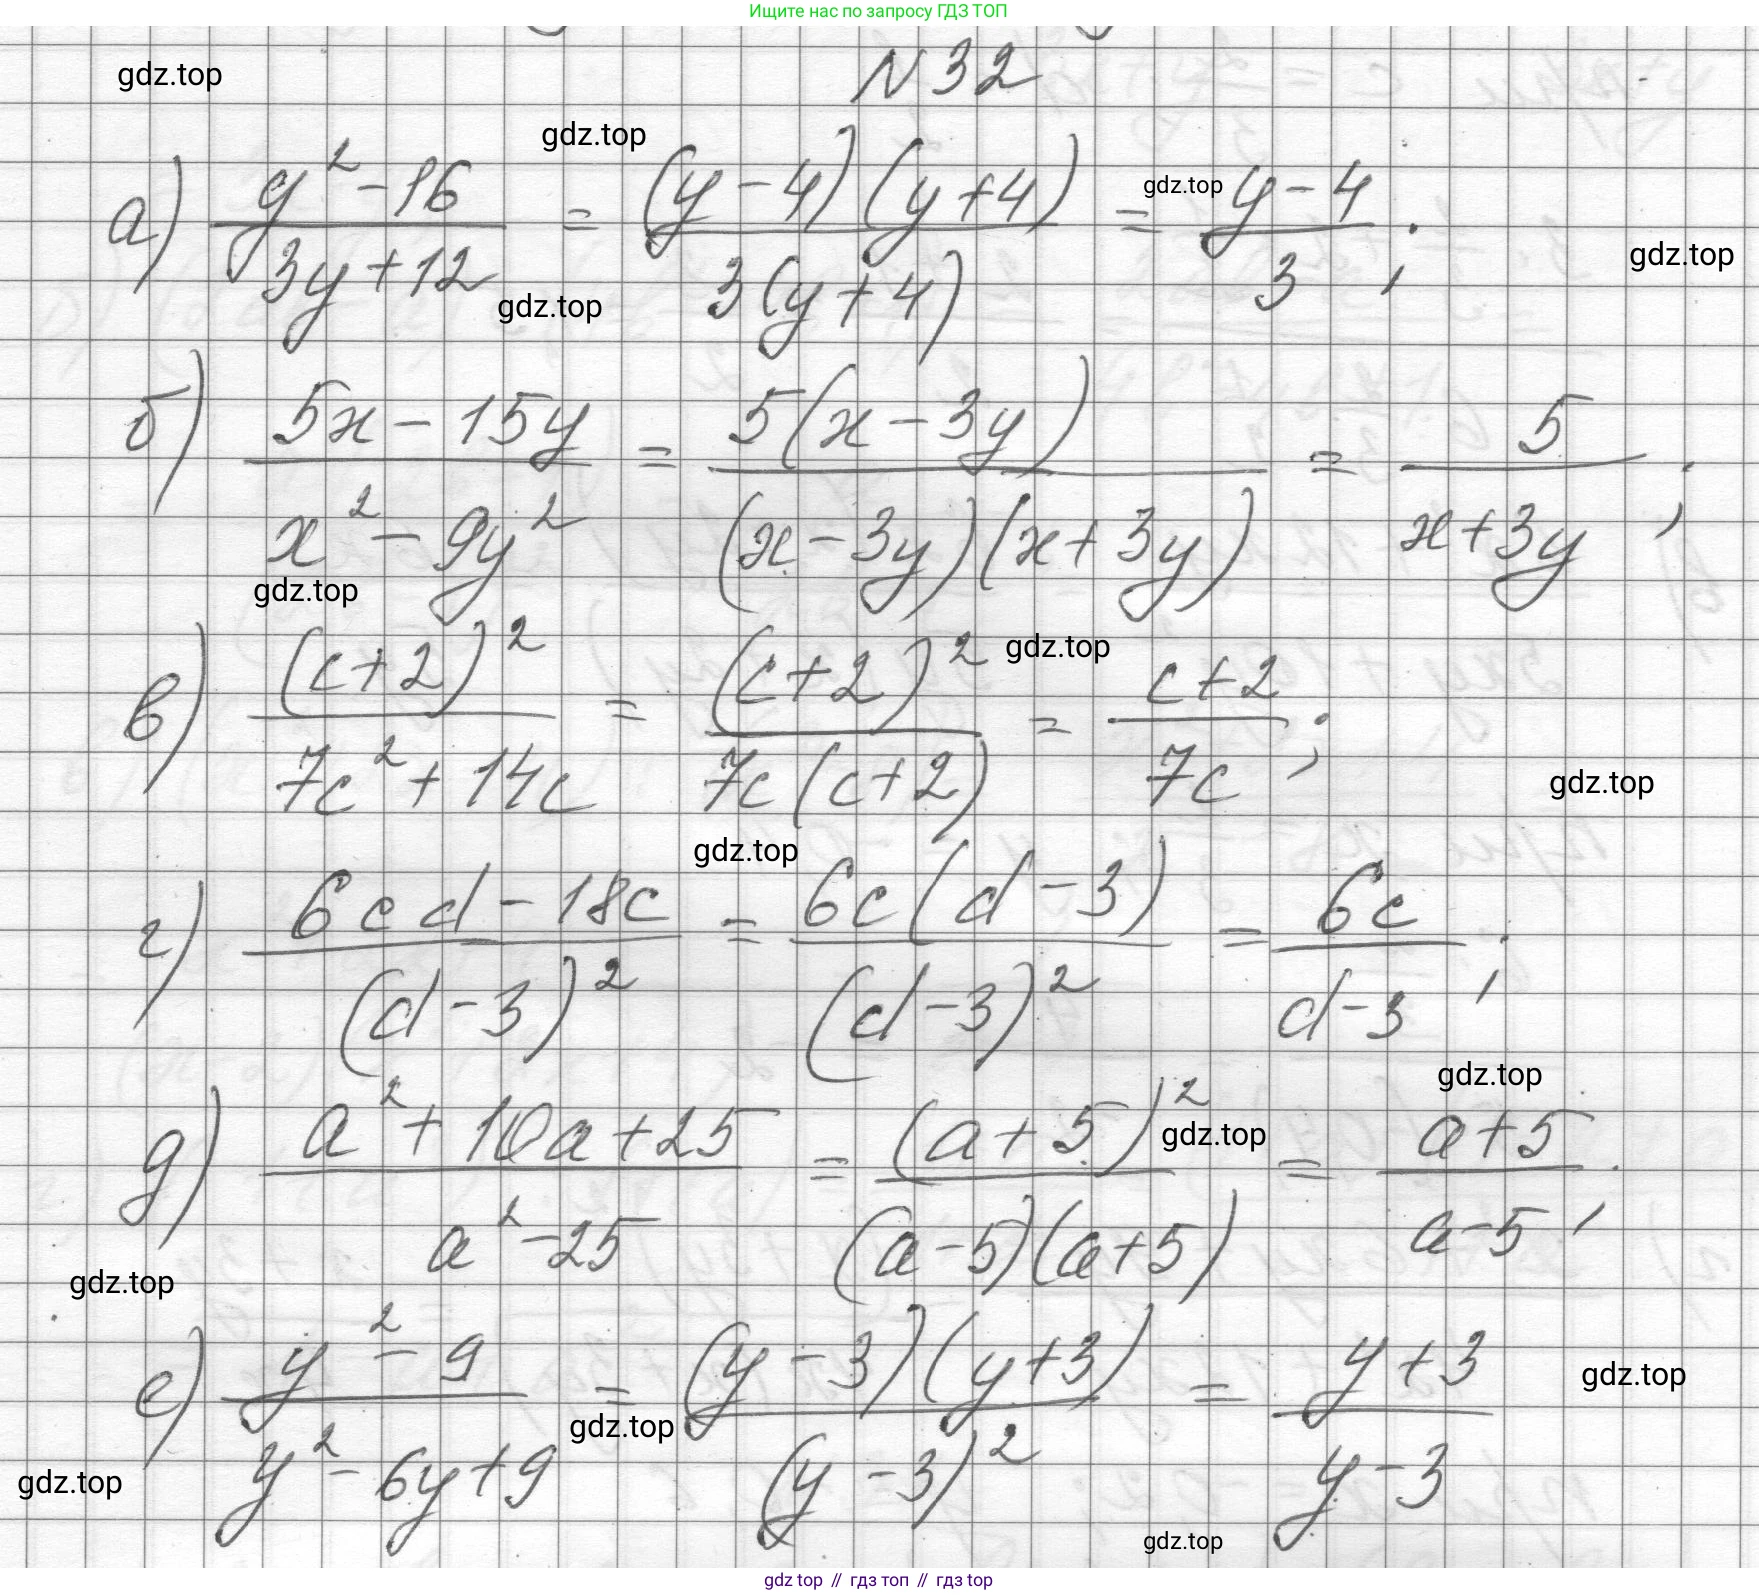 Ищите нас по запросу ГДЗ ТОП
N 32
gdz.top
gdz.top
а) (y² - 16)/(3y + 12) = ((y - 4)(y + 4))/(3(y + 4)) = (y - 4)/3 ;
gdz.top
gdz.top
gdz.top
б) (5x - 15y)/(x² - 9y²) = (5(x - 3y))/((x - 3y)(x + 3y)) = 5/(x + 3y) ;
gdz.top
gdz.top
в) (c + 2)²/(7c² + 14c) = (c + 2)²/(7c(c + 2)) = (c + 2)/(7c) ;
gdz.top
gdz.top
г) (6cd - 18c)/(d - 3)² = (6c(d - 3))/(d - 3)² = 6c/(d - 3) ;
gdz.top
д) (a² + 10a + 25)/(a² - 25) = (a + 5)²/((a - 5)(a + 5)) = (a + 5)/(a - 5) ;
gdz.top
gdz.top
е) (y² - 9)/(y² - 6y + 9) = ((y - 3)(y + 3))/(y - 3)² = (y + 3)/(y - 3)
gdz.top
gdz.top
gdz.top
gdz.top
gdz top // гдз топ // гдз top